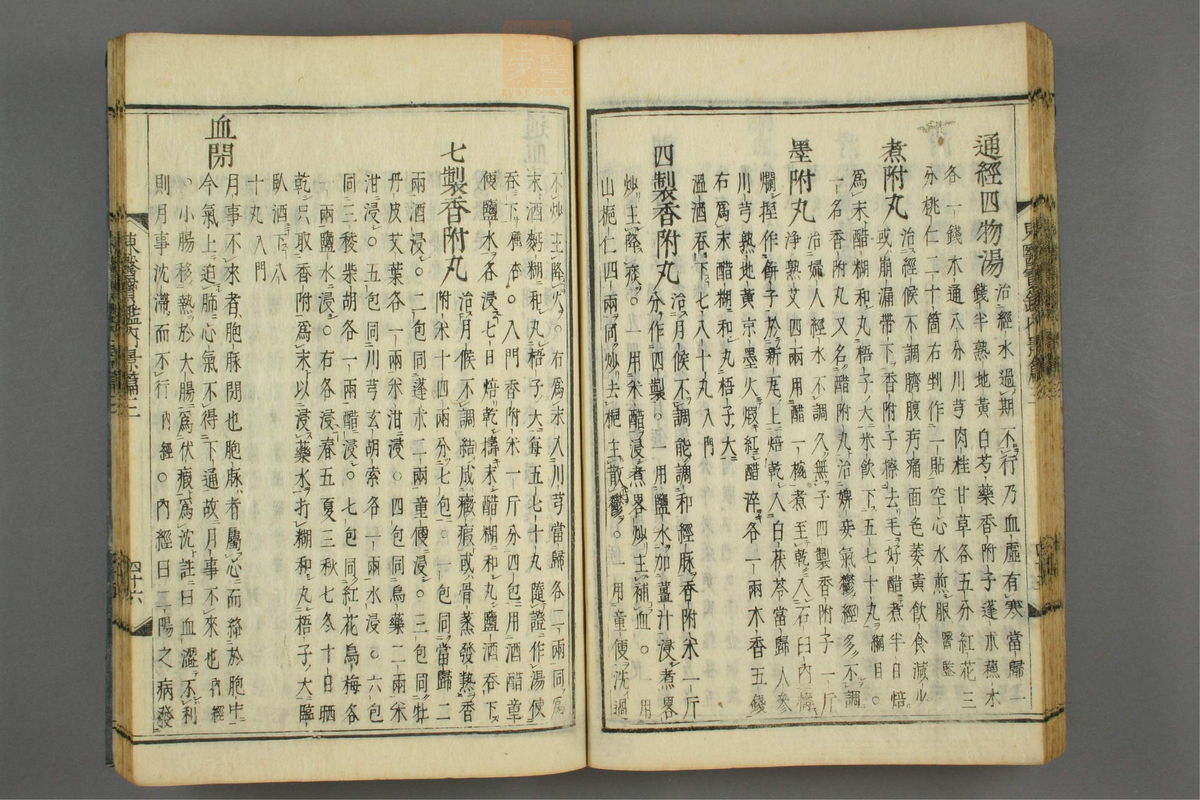 通經四物湯 治經水過期不行乃血虛有寒當歸一
錢半熟地黃白芍藥香附子蓬朮蘇木
各一錢木通八分川芎肉桂甘草各五分紅花三
分桃仁二十箇右剉作一貼空心水煎服 醫鑑
煮附丸 治經候不調臍腹㽲痛面色萎黃飲食減少
或崩漏帶下香附子擦去毛好醋煮半日焙
爲末醋糊和丸梧子大米飲下五七十丸 綱目○
一名香附丸又名醋附丸治婢妾氣鬱經多不調
墨附丸 治婦人經水不調久無子四製香附子一斤
淨熟艾四兩用醋一椀煮至乾入石臼內搗
爛捏作餅子於新瓦上焙乾入白茯苓當歸人參
川芎熟地黃京墨火煅紅醋淬各一兩木香五錢
右爲末醋糊和丸梧子大
溫酒吞下七八十丸 入門
四製香附丸 治月候不調能調和經脉香附米一斤
分作四製○一用鹽水加薑汁浸煮畧
炒主降痰○一用米醋浸煮畧炒主補血○一用
山梔仁四兩同炒去梔主散鬱○一用童便洗過
不炒主降火○右爲末入川芎當歸各二兩同爲
末酒麪糊和丸梧子大每五七十丸隨證作湯使
吞下 濟丞○入門香附米一斤分四包用酒醋童
便鹽水各浸七日焙乾擣末醋糊和丸鹽酒吞下
七製香附丸 治月候不調結成癥瘕或骨蒸發熱香
附米十四兩分七包○一包同當歸二
兩酒浸○二包同蓬朮二兩童便浸○三包同牡
丹皮艾葉各一兩米泔浸○四包同烏藥二兩米
泔浸○五包同川芎玄胡索各一兩水浸○六包
同三稜柴胡各一兩醋浸○七包同紅花烏梅各
一兩鹽水浸○右各浸春五夏三秋七冬十日晒
乾只取香附爲末以浸藥水打糊和丸梧子大臨
臥酒下八
十丸 入門
血閉
月事不來者胞脉閉也胞脉者屬心而絡於胞中
今氣上迫肺心氣不得下通故月事不來也 內經
○小腸移熱於大腸爲伏瘕爲沈註曰血澀不利
則月事沈滯而不行 內經○內經曰二陽之病發
東醫寶鑑內景篇二
四十六